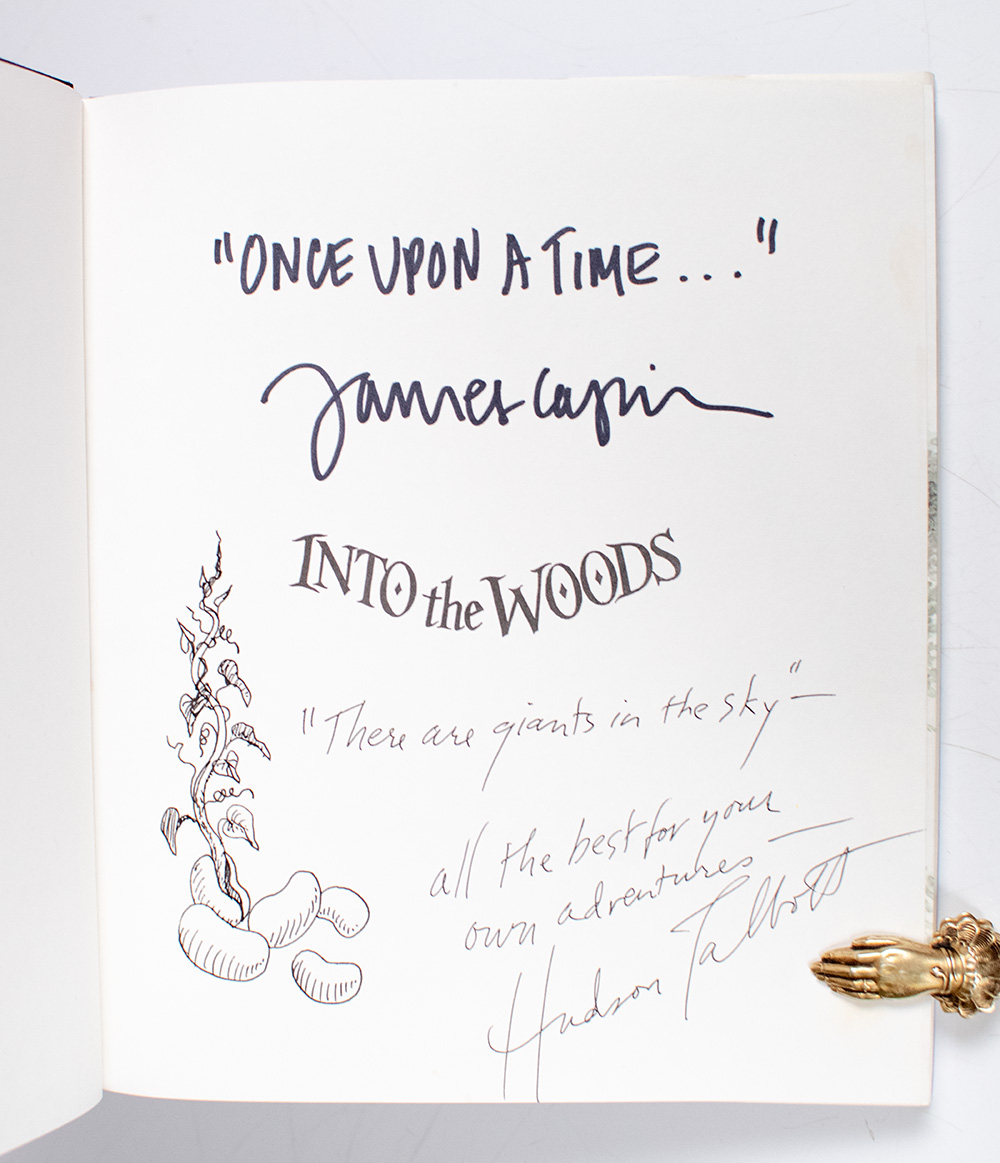 "ONCE UPON A TIME..."
James Lapin
INTO the WOODS
"There are giants in the sky"—
all the best for your
own adventures —
Hudson Talbott